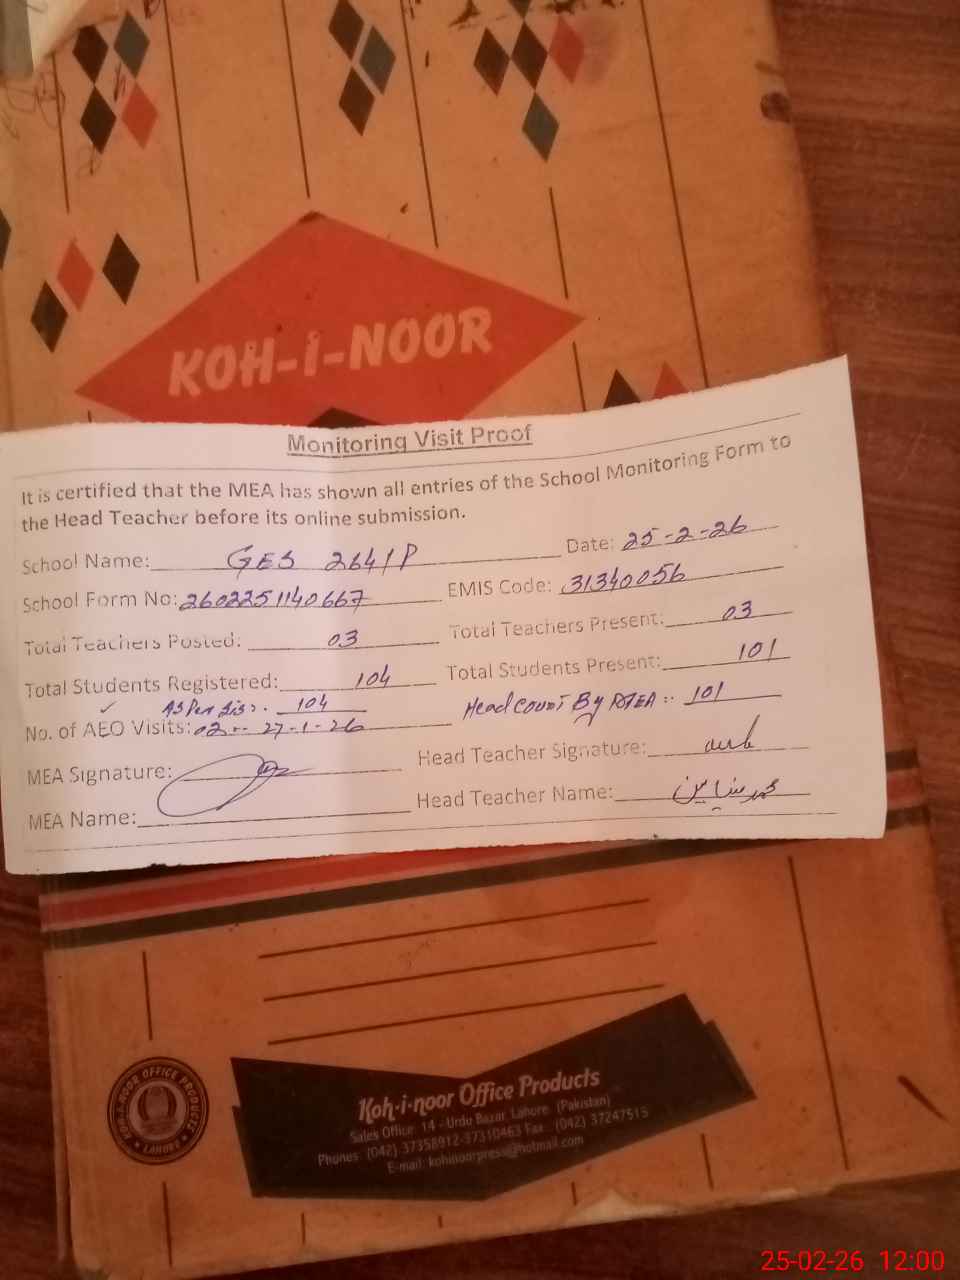 KOH-i-NOOR
Monitoring Visit Proof
It is certified that the MEA has shown all entries of the School Monitoring Form to
the Head Teacher before its online submission.
School Name: GES 264/P Date: 25-2-26
School Form No: 2602251140667 EMIS Code: 31340056
Total Teachers Posted: 03 Total Teachers Present: 03
Total Students Registered: 104 Total Students Present: 101
As Per Sis:. 104 Head Count By MEA :: 101
No. of AEO Visits: 02 -- 27-1-26
MEA Signature: Head Teacher Signature:
MEA Name: Head Teacher Name: محمد شاہین
KOH-I-NOOR OFFICE PRODUCTS
LAHORE
Koh-i-noor Office Products
Sales Office: 14 - Urdu Bazar, Lahore. (Pakistan)
Phones: (042) 37358912-37310463 Fax: (042) 37247515
E-mail: kohinoorpress@hotmail.com
25-02-26 12:00